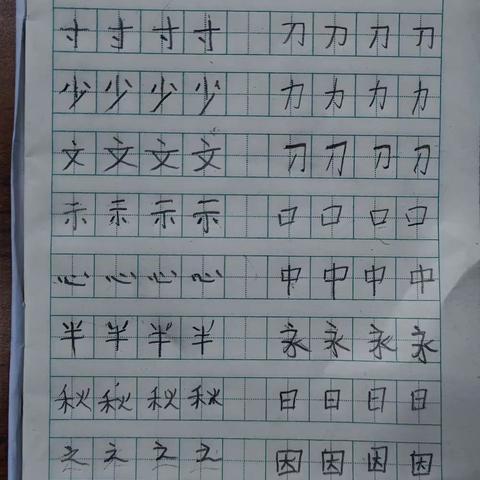 寸寸寸寸 刀刀刀刀
少少少少 力力力力
文文文文 刀刀刀刀
示示示示 口口口口
心心心心 中中中中
半半半半 永永永永
秋秋秋秋 日日日日
之之之之 因因因因